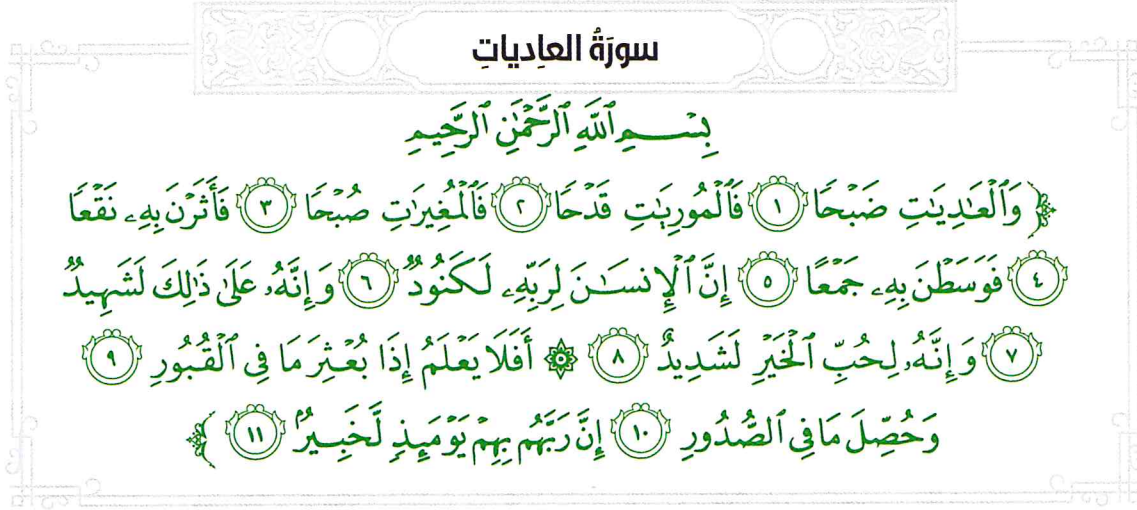 سورَةُ العادِياتِ
بِسْمِ ٱللَّهِ ٱلرَّحْمَٰنِ ٱلرَّحِيمِ
﴿ وَٱلْعَٰدِيَٰتِ ضَبْحًا ١ فَٱلْمُورِيَٰتِ قَدْحًا ٢ فَٱلْمُغِيرَٰتِ صُبْحًا ٣ فَأَثَرْنَ بِهِۦ نَقْعًا
٤ فَوَسَطْنَ بِهِۦ جَمْعًا ٥ إِنَّ ٱلْإِنسَٰنَ لِرَبِّهِۦ لَكَنُودٌ ٦ وَإِنَّهُۥ عَلَىٰ ذَٰلِكَ لَشَهِيدٌ
٧ وَإِنَّهُۥ لِحُبِّ ٱلْخَيْرِ لَشَدِيدٌ ٨ ۞ أَفَلَا يَعْلَمُ إِذَا بُعْثِرَ مَا فِى ٱلْقُبُورِ ٩
وَحُصِّلَ مَا فِى ٱلصُّدُورِ ١٠ إِنَّ رَبَّهُم بِهِمْ يَوْمَئِذٍ لَّخَبِيرٌۢ ١١ ﴾